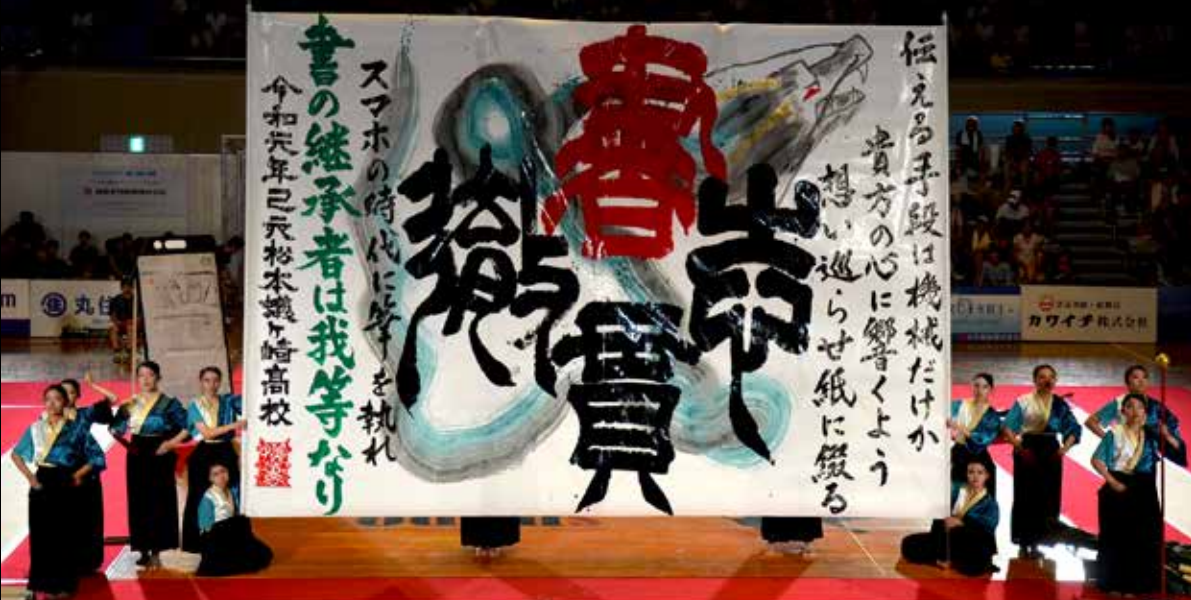 伝える手段は機械だけか
貴方の心に響くよう
想い巡らせ紙に綴る
書
貫
徹
スマホの時代に筆を執れ
書の継承者は我等なり
令和元年己亥松本蟻ヶ崎高校
丸住
カワイチ株式会社